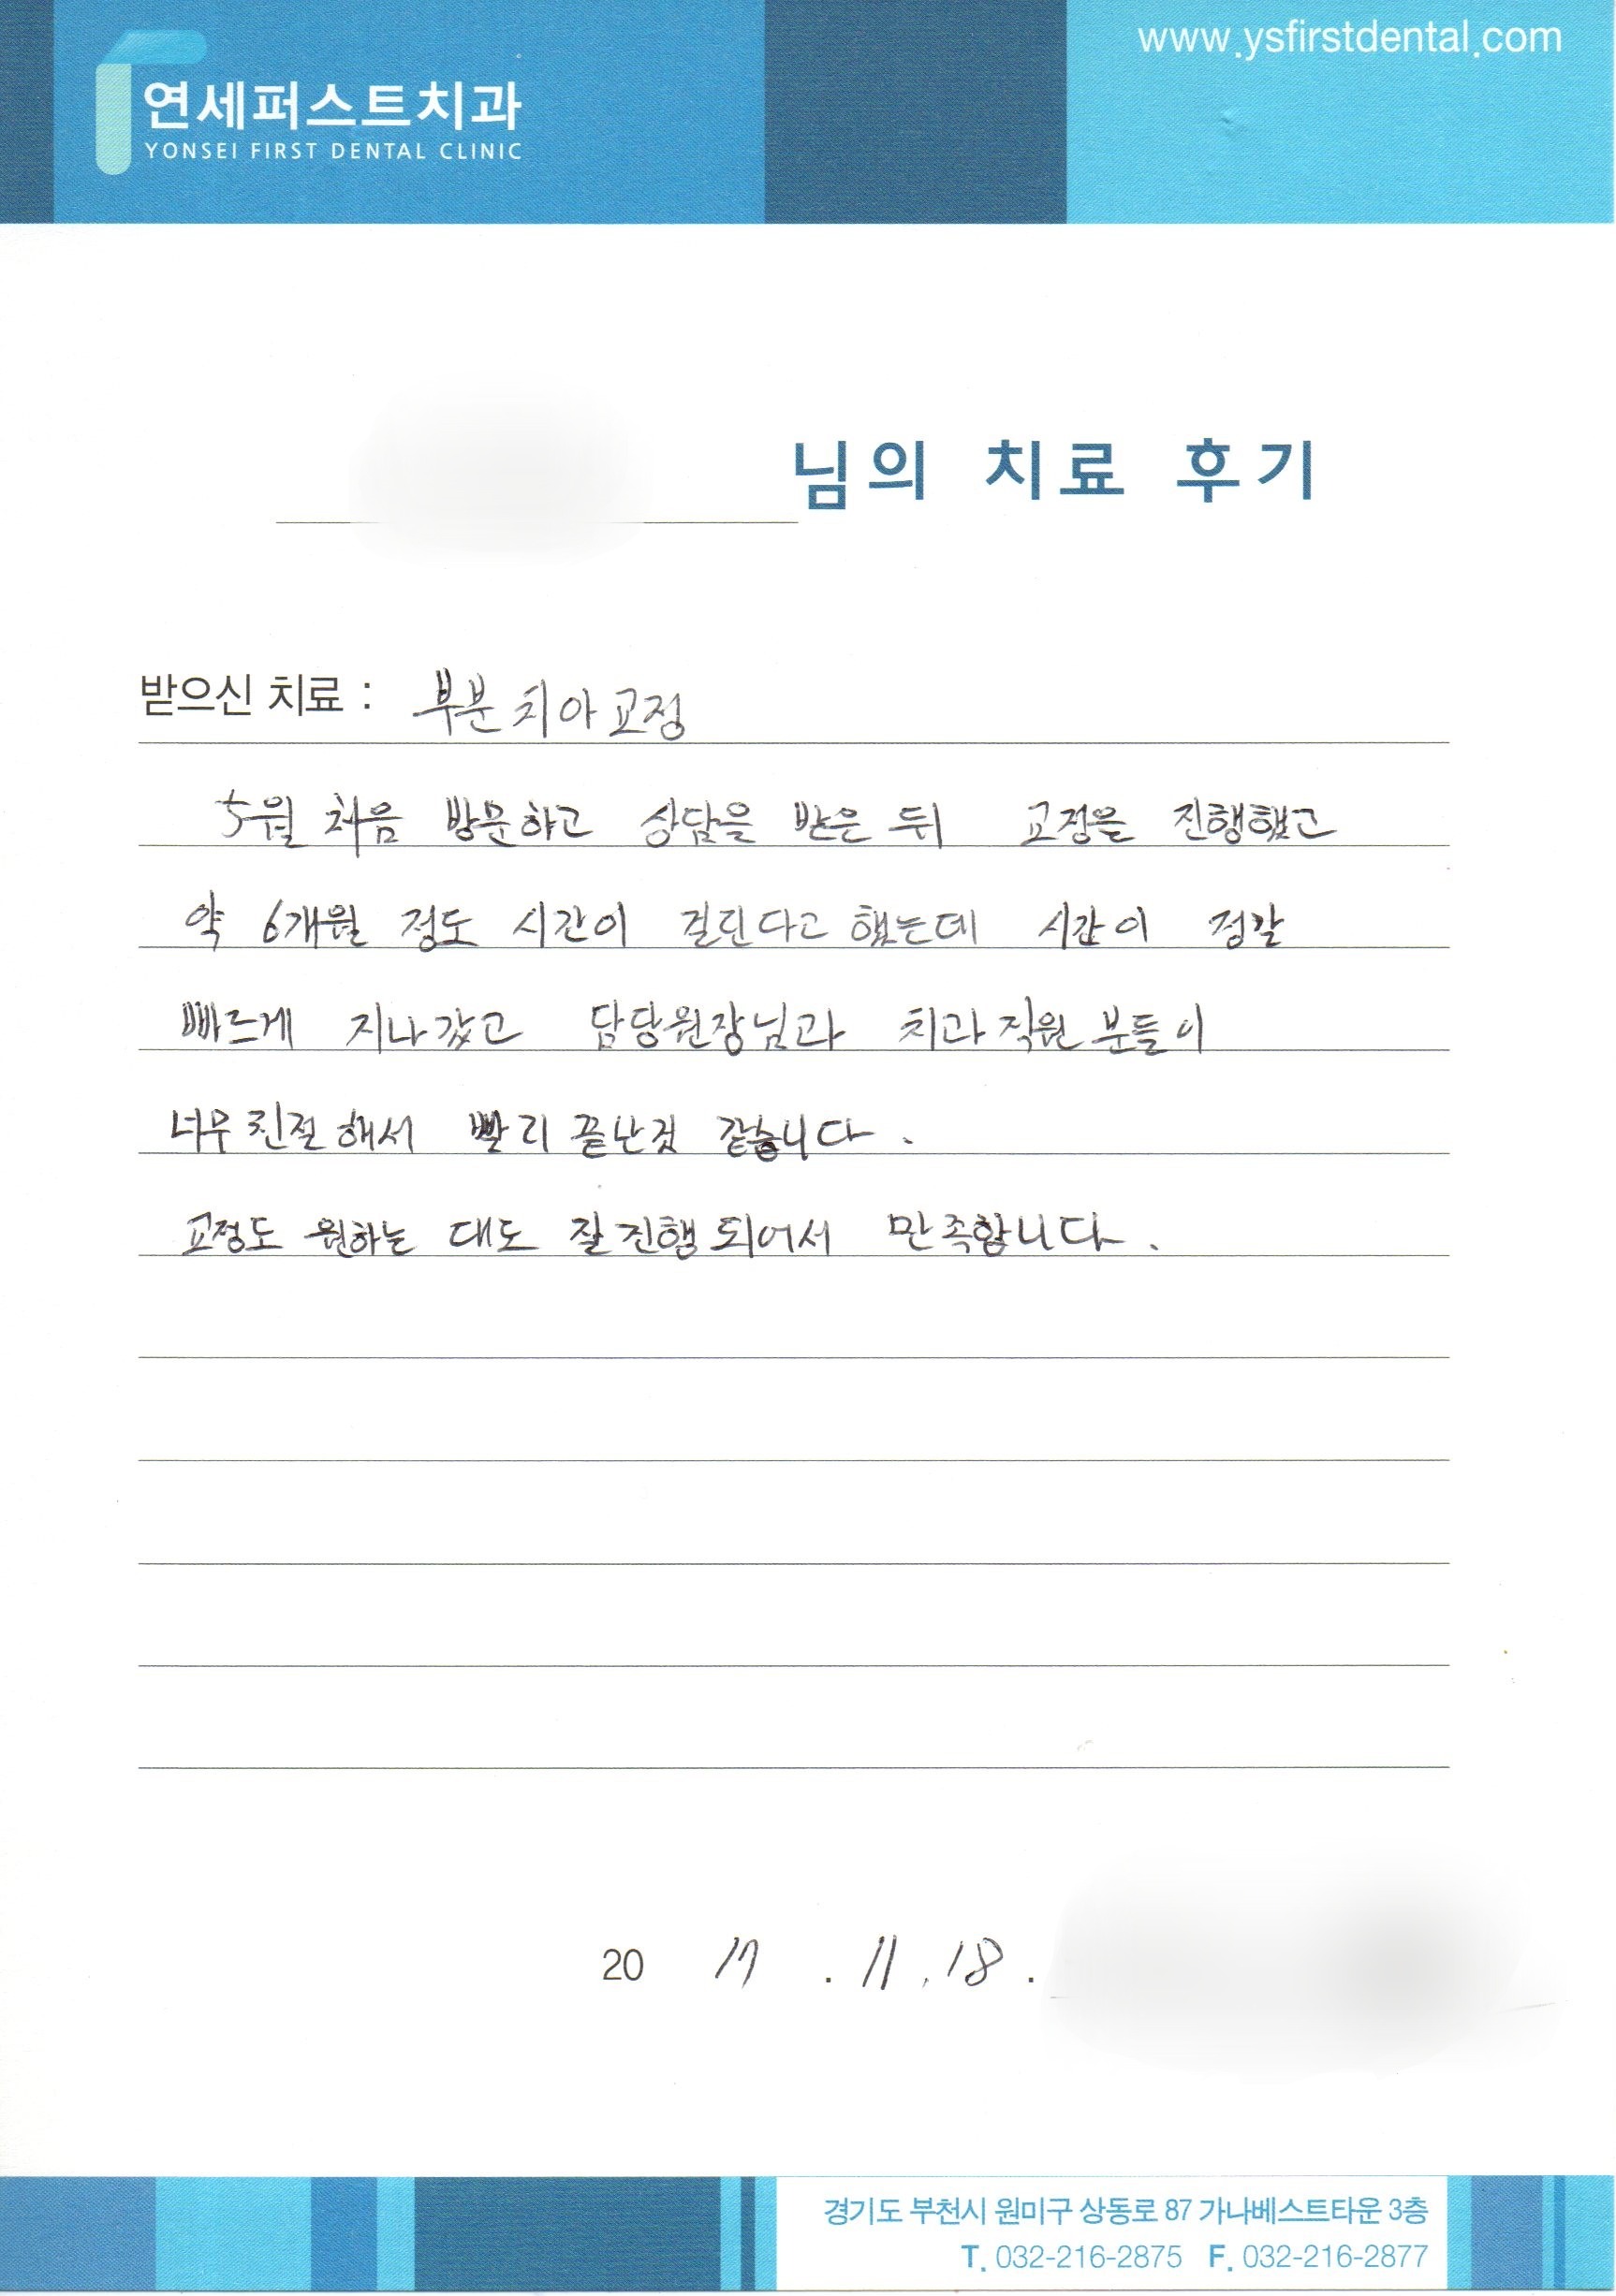 www.ysfirstdental.com
연세퍼스트치과
YONSEI FIRST DENTAL CLINIC
님의 치료 후기
받으신 치료 : 부분치아교정
5월 처음 방문하고 상담을 받은 뒤 교정을 진행했고
약 6개월 정도 시간이 걸린다고 했는데 시간이 정말
빠르게 지나갔고 담당원장님과 치과직원 분들이
너무친절해서 빨리 끝난것 같습니다.
교정도 원하는 대로 잘진행되어서 만족합니다.
20 17 . 11 . 18 .
경기도 부천시 원미구 상동로 87 가나베스트타운 3층
T. 032-216-2875 F. 032-216-2877